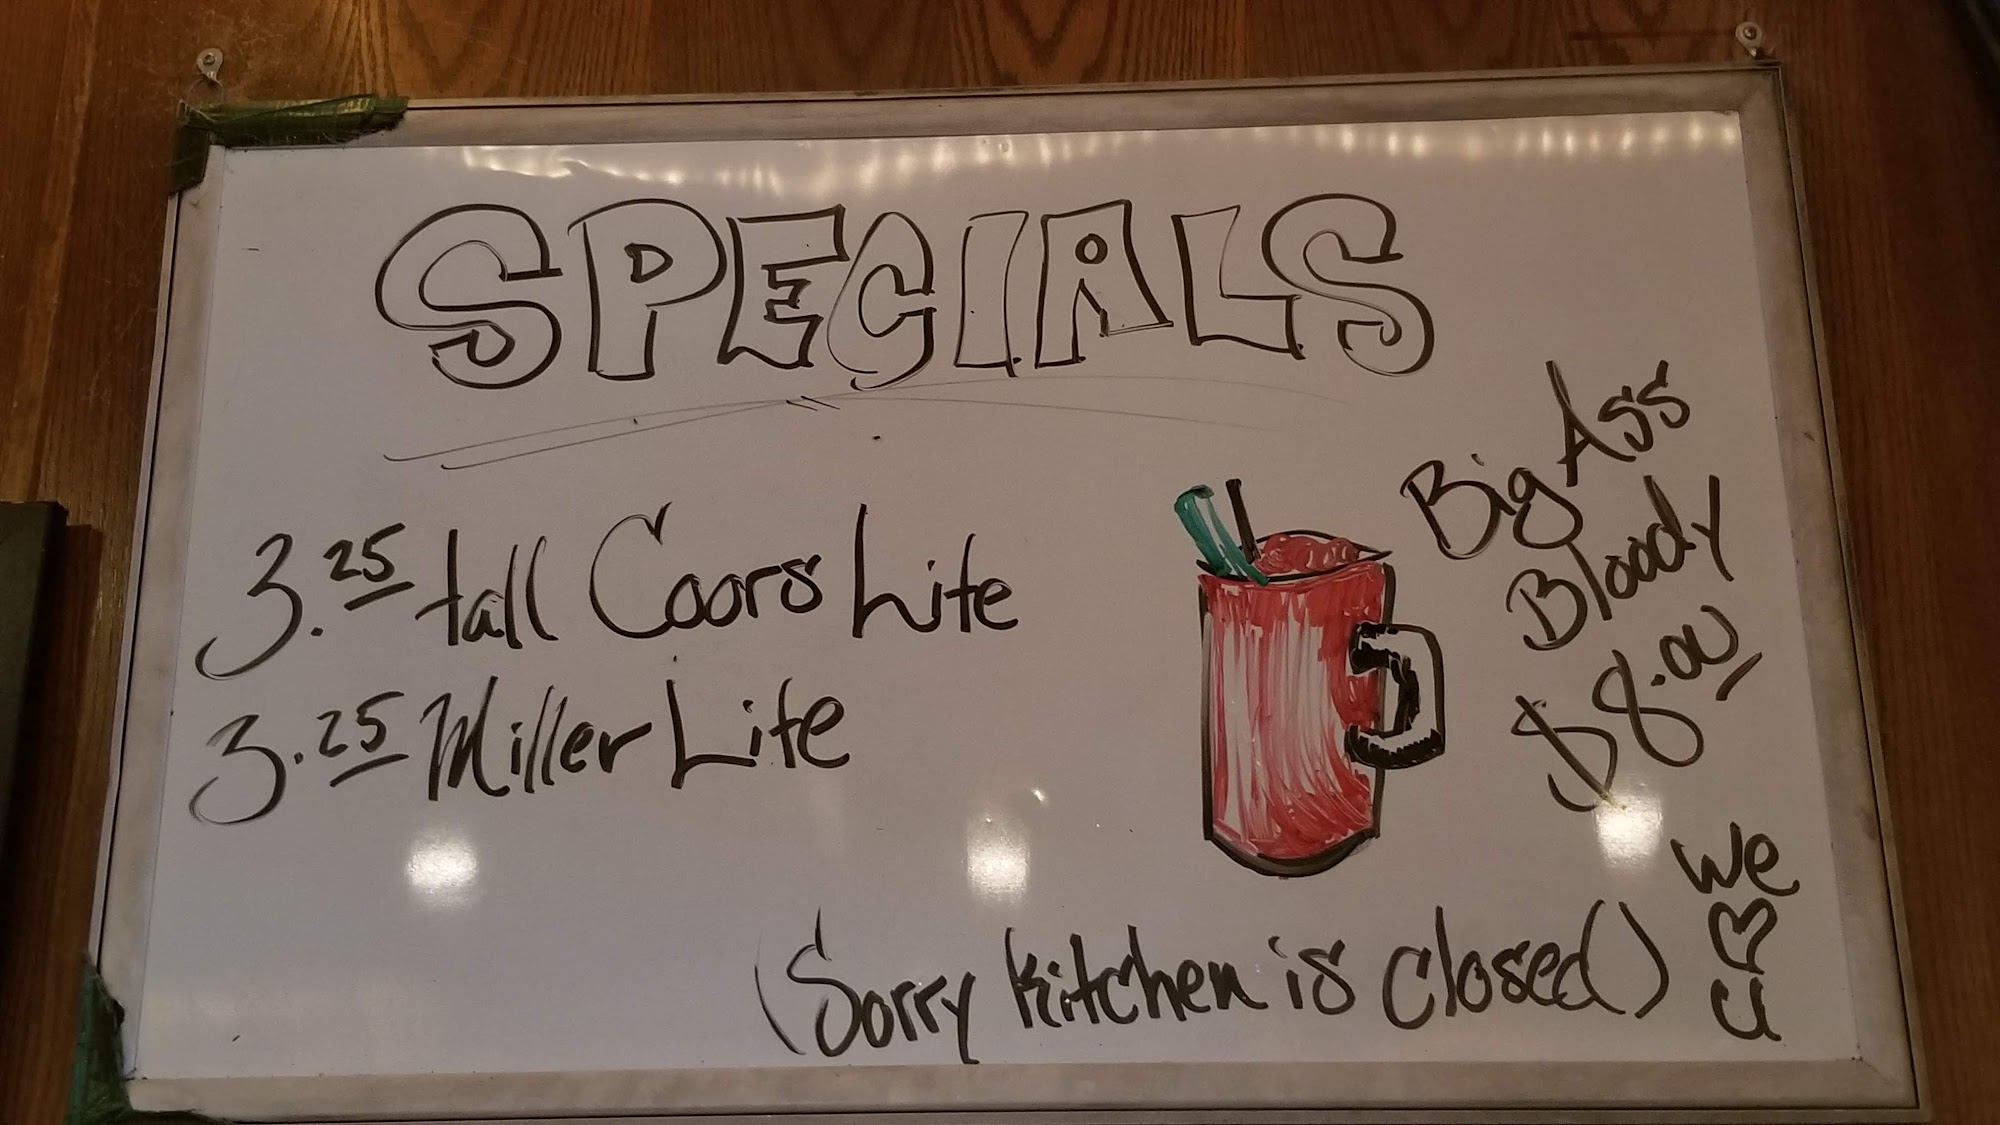 SPECIALS
3.25 tall Coors Lite
3.25 Miller Lite
Big Ass
Bloody
$8.00
(Sorry kitchen is closed)
We
♡
U